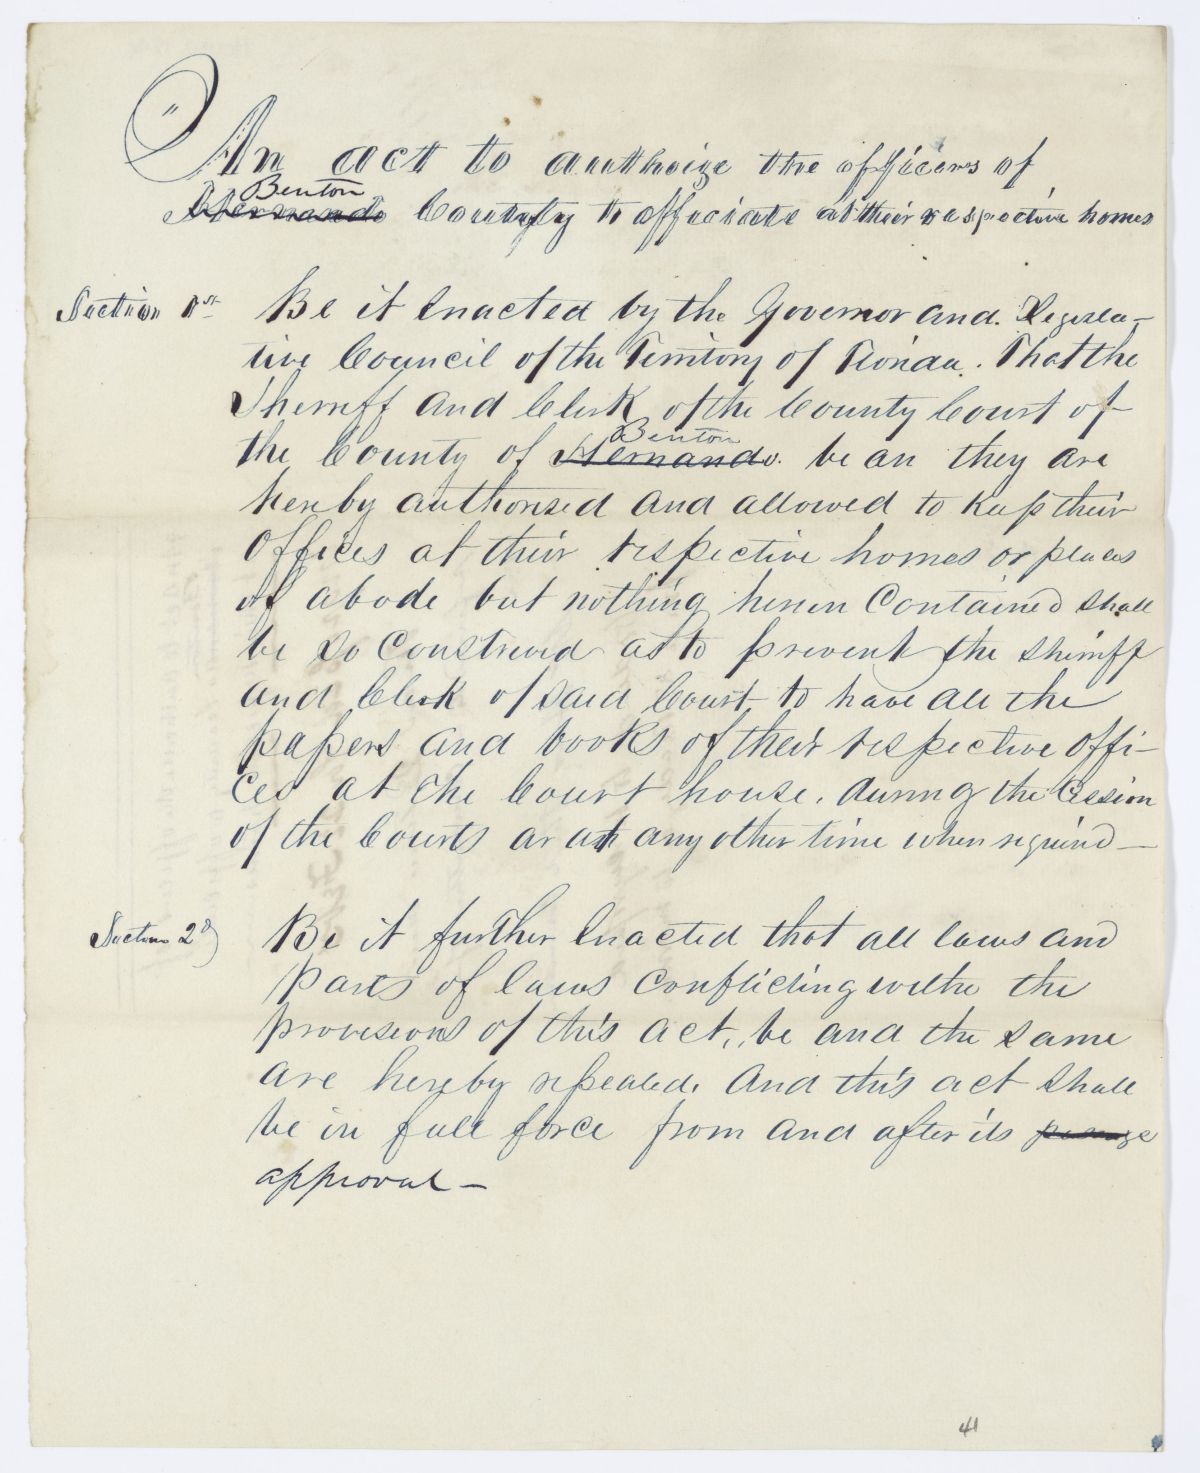 An act to authorize the officers of
Benton
Hernando County to officiate at their respective homes
Section 1st Be it Enacted by the Governor and Legisla-
tive Council of the Territory of Florida. That the
Sherriff and Clerk of the County Court of
Benton
the County of Hernando. be an they are
hereby authorised and allowed to keep their
Offices at their respective homes or places
of abode but nothing herein Contained shall
be so Construed as to prevent the Sherriff
and Clerk of said Court to have all the
papers and books of their respective Offi-
ces at the Court house. during the Cession
of the Courts or at any other time when required—
Section 2d Be it further Enacted that all laws and
parts of laws conflicting withe the
provisions of this act, be and the same
are hereby repealed. And this act Shall
be in full force from and after its passage
approval—
41